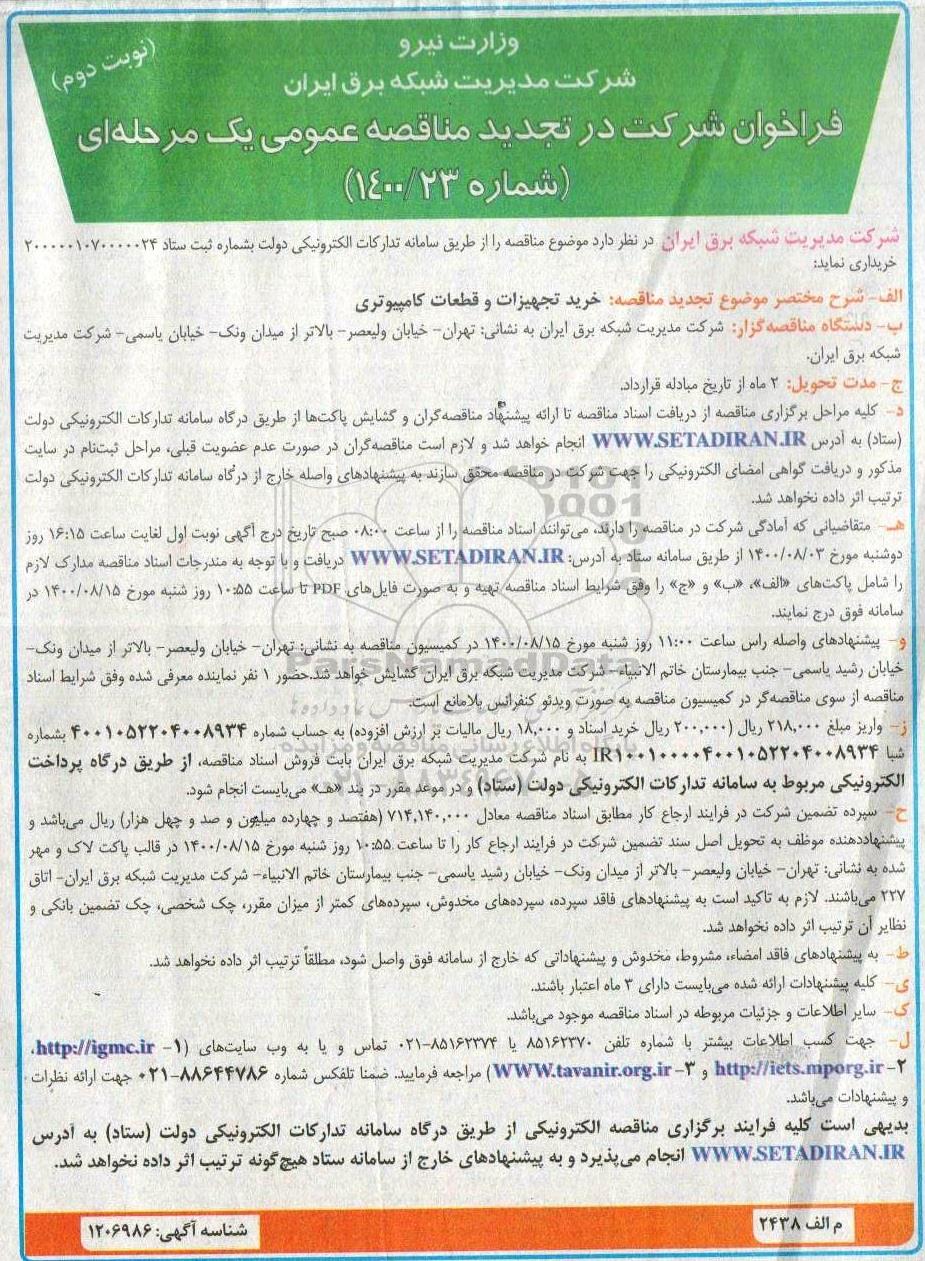 وزارت نیرو
(نوبت دوم)
شرکت مدیریت شبکه برق ایران
فراخوان شرکت در تجدید مناقصه عمومی یک مرحله‌ای
(شماره ۱۴۰۰/۲۳)
شرکت مدیریت شبکه برق ایران در نظر دارد موضوع مناقصه را از طریق سامانه تدارکات الکترونیکی دولت بشماره ثبت ستاد ۲۰۰۰۰۰۱۰۷۰۰۰۰۰۲۴
خریداری نماید:
الف- شرح مختصر موضوع تجدید مناقصه: خرید تجهیزات و قطعات کامپیوتری
ب- دستگاه مناقصه‌گزار: شرکت مدیریت شبکه برق ایران به نشانی: تهران- خیابان ولیعصر- بالاتر از میدان ونک- خیابان یاسمی- شرکت مدیریت
شبکه برق ایران.
ج- مدت تحویل: ۲ ماه از تاریخ مبادله قرارداد.
د- کلیه مراحل برگزاری مناقصه از دریافت اسناد مناقصه تا ارائه پیشنهاد مناقصه‌گران و گشایش پاکت‌ها از طریق درگاه سامانه تدارکات الکترونیکی دولت
(ستاد) به آدرس WWW.SETADIRAN.IR انجام خواهد شد و لازم است مناقصه‌گران در صورت عدم عضویت قبلی، مراحل ثبت‌نام در سایت
مذکور و دریافت گواهی امضای الکترونیکی را جهت شرکت در مناقصه محقق سازند به پیشنهادهای واصله خارج از درگاه سامانه تدارکات الکترونیکی دولت
ترتیب اثر داده نخواهد شد.
هـ- متقاضیانی که آمادگی شرکت در مناقصه را دارند، می‌توانند اسناد مناقصه را از ساعت ۰۸:۰۰ صبح تاریخ درج آگهی نوبت اول لغایت ساعت ۱۶:۱۵ روز
دوشنبه مورخ ۱۴۰۰/۰۸/۰۳ از طریق سامانه ستاد به آدرس: WWW.SETADIRAN.IR دریافت و با توجه به مندرجات اسناد مناقصه مدارک لازم
را شامل پاکت‌های «الف»، «ب» و «ج» را وفق شرایط اسناد مناقصه تهیه و به صورت فایل‌های PDF تا ساعت ۱۰:۵۵ روز شنبه مورخ ۱۴۰۰/۰۸/۱۵ در
سامانه فوق درج نمایند.
و- پیشنهادهای واصله راس ساعت ۱۱:۰۰ روز شنبه مورخ ۱۴۰۰/۰۸/۱۵ در کمیسیون مناقصه به نشانی: تهران- خیابان ولیعصر- بالاتر از میدان ونک-
خیابان رشید یاسمی- جنب بیمارستان خاتم الانبیاء- شرکت مدیریت شبکه برق ایران گشایش خواهد شد.حضور ۱ نفر نماینده معرفی شده وفق شرایط اسناد
مناقصه از سوی مناقصه‌گر در کمیسیون مناقصه به صورت ویدئو کنفرانس بلامانع است.
ز- واریز مبلغ ۲۱۸,۰۰۰ ریال (۲۰۰,۰۰۰ ریال خرید اسناد و ۱۸,۰۰۰ ریال مالیات بر ارزش افزوده) به حساب شماره ۴۰۰۱۰۵۲۲۰۴۰۰۸۹۳۴ بشماره
شبا IR۱۰۰۱۰۰۰۰۴۰۰۱۰۵۲۲۰۴۰۰۸۹۳۴ به نام شرکت مدیریت شبکه برق ایران بابت فروش اسناد مناقصه، از طریق درگاه پرداخت
الکترونیکی مربوط به سامانه تدارکات الکترونیکی دولت (ستاد) و در موعد مقرر در بند «هـ» می‌بایست انجام شود.
ح- سپرده تضمین شرکت در فرایند ارجاع کار مطابق اسناد مناقصه معادل ۷۱۴,۱۴۰,۰۰۰ (هفتصد و چهارده میلیون و صد و چهل هزار) ریال می‌باشد و
پیشنهاددهنده موظف به تحویل اصل سند تضمین شرکت در فرایند ارجاع کار را تا ساعت ۱۰:۵۵ روز شنبه مورخ ۱۴۰۰/۰۸/۱۵ در قالب پاکت لاک و مهر
شده به نشانی: تهران- خیابان ولیعصر- بالاتر از میدان ونک- خیابان رشید یاسمی- جنب بیمارستان خاتم الانبیاء- شرکت مدیریت شبکه برق ایران- اتاق
۲۲۷ می‌باشند. لازم به تاکید است به پیشنهادهای فاقد سپرده، سپرده‌های مخدوش، سپرده‌های کمتر از میزان مقرر، چک شخصی، چک تضمین بانکی و
نظایر آن ترتیب اثر داده نخواهد شد.
ط- به پیشنهادهای فاقد امضاء، مشروط، مخدوش و پیشنهاداتی که خارج از سامانه فوق واصل شود، مطلقاً ترتیب اثر داده نخواهد شد.
ی- کلیه پیشنهادات ارائه شده می‌بایست دارای ۳ ماه اعتبار باشند.
ک- سایر اطلاعات و جزئیات مربوطه در اسناد مناقصه موجود می‌باشد.
ل- جهت کسب اطلاعات بیشتر با شماره تلفن ۸۵۱۶۲۳۷۰ یا ۸۵۱۶۲۳۷۴-۰۲۱ تماس و یا به وب سایت‌های (۱- http://igmc.ir،
۲- http://iets.mporg.ir و ۳- WWW.tavanir.org.ir) مراجعه فرمایید. ضمنا تلفکس شماره ۸۸۶۴۴۷۸۶-۰۲۱ جهت ارائه نظرات
و پیشنهادات می‌باشد.
بدیهی است کلیه فرایند برگزاری مناقصه الکترونیکی از طریق درگاه سامانه تدارکات الکترونیکی دولت (ستاد) به آدرس
WWW.SETADIRAN.IR انجام می‌پذیرد و به پیشنهادهای خارج از سامانه ستاد هیچ‌گونه ترتیب اثر داده نخواهد شد.
م الف ۲۴۳۸
شناسه آگهی: ۱۲۰۶۹۸۶
ParsNamadData